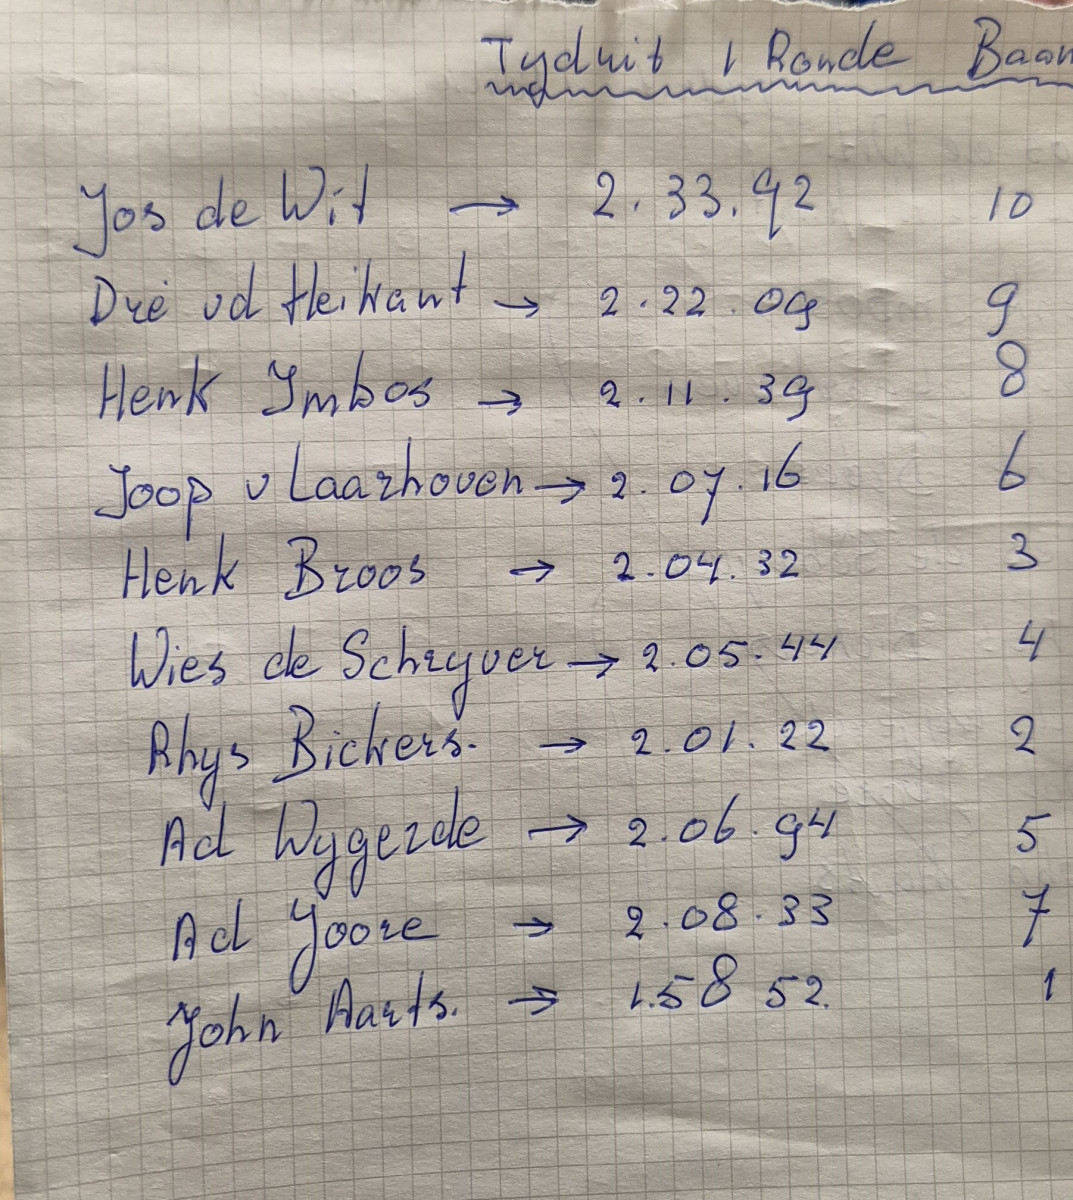 Tydrit 1 Ronde Baan
Jos de Wit → 2.33.92 10
Dré vd Heikant → 2.22.09 9
Henk Ymbos → 2.11.39 8
Joop v Laarhoven → 2.07.16 6
Henk Broos → 2.04.32 3
Wies de Schryver → 2.05.44 4
Rhys Bickers. → 2.01.22 2
Ad Wygerde → 2.06.94 5
Ad Yoore → 2.08.33 7
John Aarts. → 1.58 52. 1